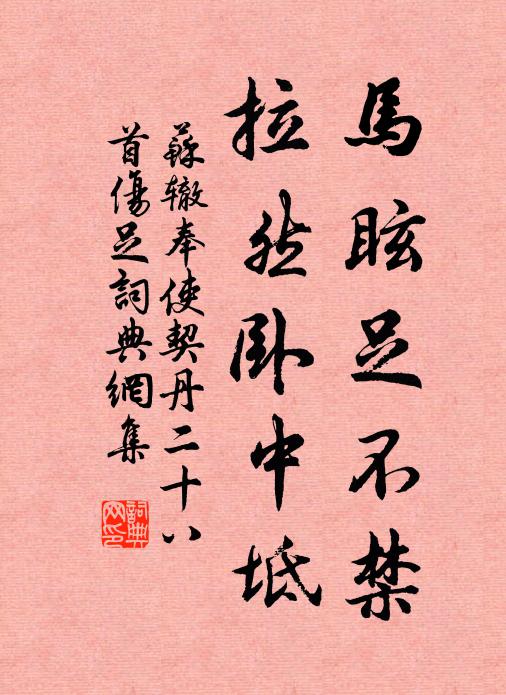 馬眩足不禁
拉然卧中坻
蘇轍奉使契丹二十八
首傷足詞典網集
詞典
网印